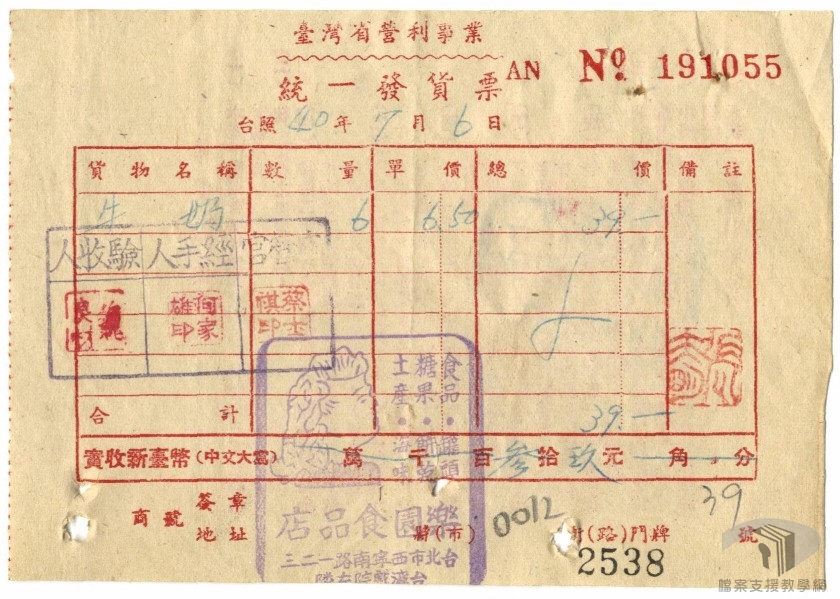 臺灣省營利事業
統一發貨票 AN No. 191055
台照 40年7月6日
貨物名稱 數量 單價 總價 備註
牛奶 6 6.50 39.—
驗收人 經手人 官
何家雄印 蔡士祺印
食品·罐頭
糖果·餅乾
土產·海味
合計 39.—
實收新臺幣(中文大寫) 萬 千 百 叁拾玖元 角 分
39
商號 簽章
地址 縣(市) 0012 (路)門牌 號
樂園食品店
台北市西寧南路一二三
台灣戲院右隣
2538
檔案支援教學網